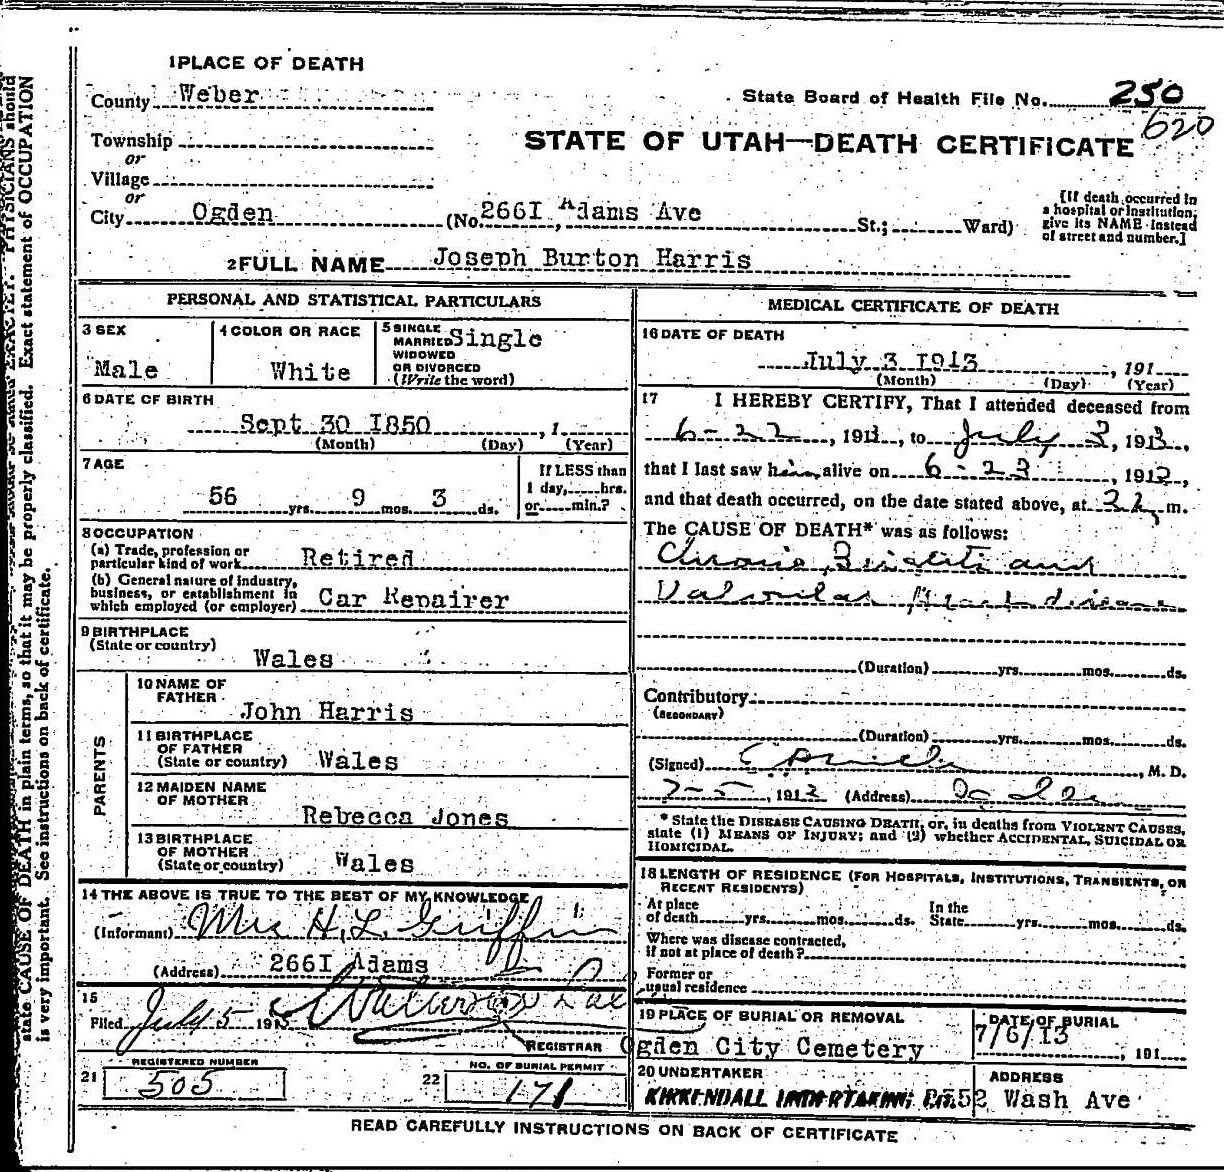 1 PLACE OF DEATH
County Weber
State Board of Health File No. 250
620
Township
or
Village
or
STATE OF UTAH—DEATH CERTIFICATE
City Ogden (No. 266I Adams Ave St.; Ward)
[If death occurred in
a hospital or institution,
give its NAME instead
of street and number.]
2 FULL NAME Joseph Burton Harris
PERSONAL AND STATISTICAL PARTICULARS
3 SEX
Male
4 COLOR OR RACE
White
5 SINGLE
MARRIED Single
WIDOWED
OR DIVORCED
(Write the word)
6 DATE OF BIRTH
Sept 30 I850, 1
(Month) (Day) (Year)
7 AGE
56 yrs. 9 mos. 3 ds.
If LESS than
1 day, hrs.
or min.?
8 OCCUPATION
(a) Trade, profession or
particular kind of work Retired
(b) General nature of industry,
business, or establishment in
which employed (or employer) Car Repairer
9 BIRTHPLACE
(State or country)
Wales
PARENTS
10 NAME OF
FATHER
John Harris
11 BIRTHPLACE
OF FATHER
(State or country) Wales
12 MAIDEN NAME
OF MOTHER
Rebecca Jones
13 BIRTHPLACE
OF MOTHER
(State or country) Wales
14 THE ABOVE IS TRUE TO THE BEST OF MY KNOWLEDGE
(Informant) Mrs H. L. Griffin
(Address) 266I Adams
15
Filed July 5 1913
REGISTRAR
REGISTERED NUMBER
21 505
NO. OF BURIAL PERMIT
22 171
MEDICAL CERTIFICATE OF DEATH
16 DATE OF DEATH
July 3 I9I3, 191
(Month) (Day) (Year)
17 I HEREBY CERTIFY, That I attended deceased from
6-22, 1913, to July 3, 1913,
that I last saw him alive on 6-23, 1913,
and that death occurred, on the date stated above, at m.
The CAUSE OF DEATH* was as follows:
Chronic Brights and
Valvular Heart disease
(Duration) yrs. mos. ds.
Contributory
(SECONDARY)
(Duration) yrs. mos. ds.
(Signed) , M. D.
7-5, 1913 (Address) Ogden
* State the DISEASE CAUSING DEATH, or, in deaths from VIOLENT CAUSES,
state (1) MEANS OF INJURY; and (2) whether ACCIDENTAL, SUICIDAL OR
HOMICIDAL.
18 LENGTH OF RESIDENCE (FOR HOSPITALS, INSTITUTIONS, TRANSIENTS, OR
RECENT RESIDENTS)
At place
of death yrs. mos. ds.
In the
State yrs. mos. ds.
Where was disease contracted,
if not at place of death?
Former or
usual residence
19 PLACE OF BURIAL OR REMOVAL
Ogden City Cemetery
DATE OF BURIAL
7/6/I3, 191
20 UNDERTAKER
KIRKENDALL UNDERTAKING
ADDRESS
2552 Wash Ave
READ CAREFULLY INSTRUCTIONS ON BACK OF CERTIFICATE
PHYSICIANS should
Exact statement of OCCUPATION
state CAUSE OF DEATH in plain terms, so that it may be properly classified.
is very important. See instructions on back of certificate.